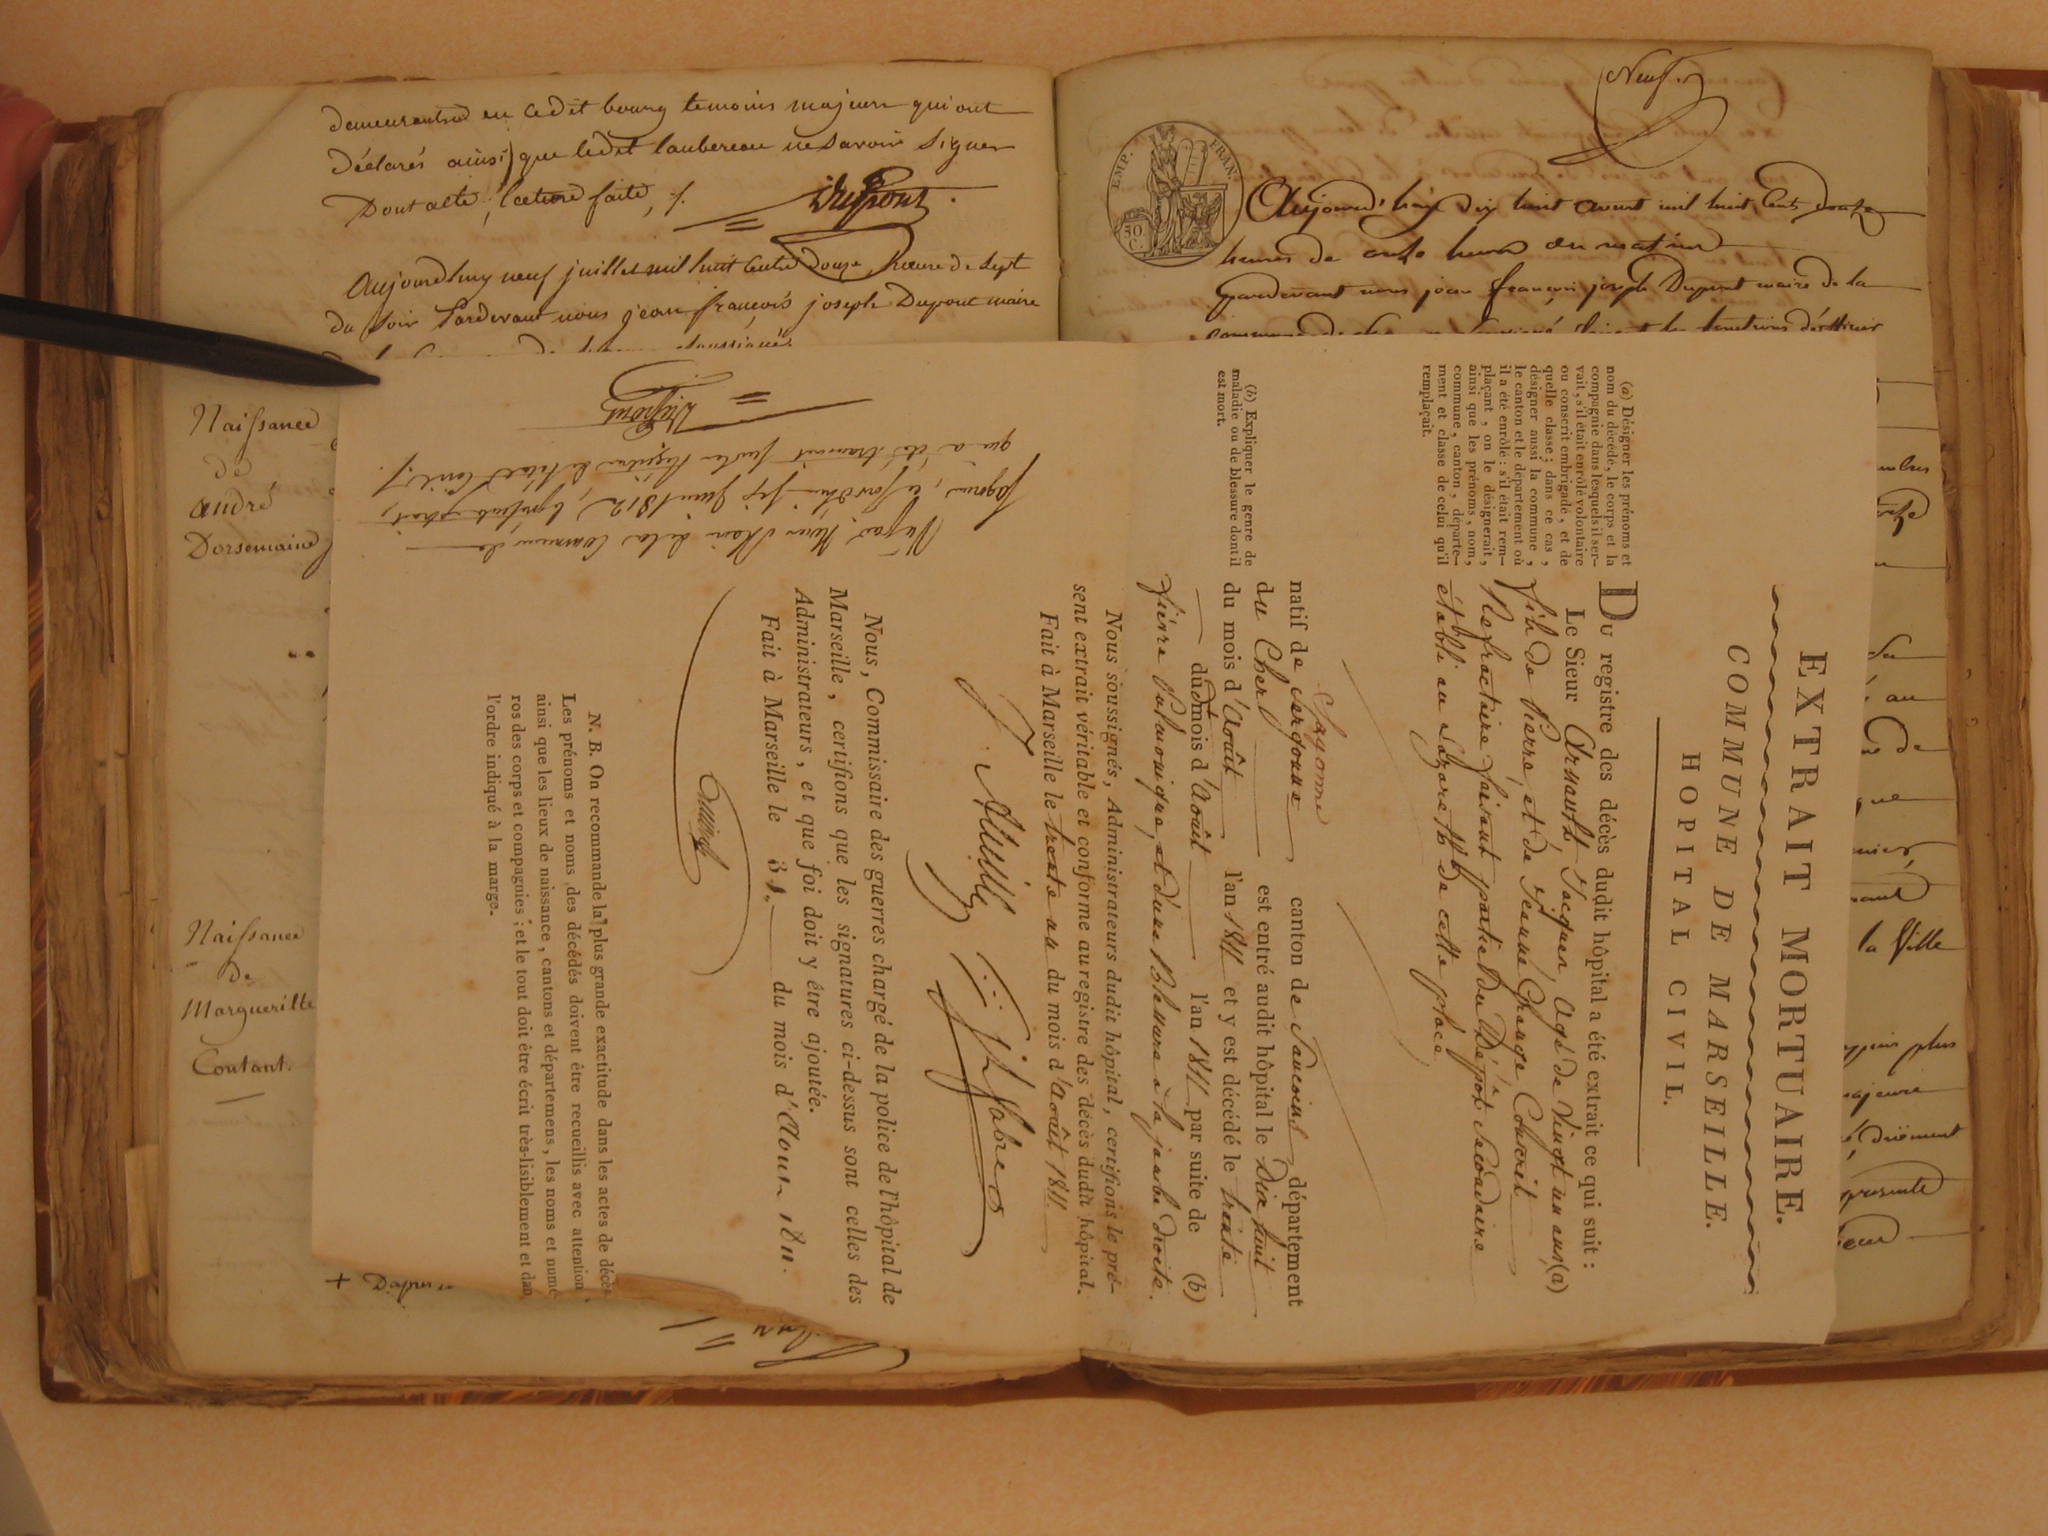 demeurants en cedit bourg temoins majeurs qui ont
déclarés ainsi que ledit laubereau ne savoir signer
Dont acte, lecture faite, ./.
Dupont
Aujourdhuy neuf juillet mil huit Cents douze, heure de sept
du soir Pardevant nous jean françois joseph Dupont maire
Naissance
de
andré
Dorsemaine
Naissance
de
Margueritte
Contant.
+ Dapres
Neuf
EMP. FRAN.
50 C.
Aujourd'huy dix huit avout mil huit Cents douze
heures de onze heures du matin
Pardevant nous jean françois joseph Dupont maire de la
EXTRAIT MORTUAIRE.
COMMUNE DE MARSEILLE.
HOPITAL CIVIL.
Du registre des décès dudit hôpital a été extrait ce qui suit :
Le Sieur Arnault, Jacques, agé de Vingt un ans, (a)
fils de Pierre, et de Jeanne Grange Conscrit
Refractaire faisant partie du Dépôt Secondaire
établi au Lazareth de cette place
(a) Désigner les prénoms et
nom du décédé, le corps et la
compagnie dans lesquels il ser-
vait, s'il était enrôlé volontaire
ou conscrit embrigadé, et de
quelle classe ; dans ce cas,
désigner aussi la commune,
le canton et le département où
il a été enrôlé : s'il était rem-
plaçant, on le désignerait,
ainsi que les prénoms, nom,
commune, canton, départe-
ment et classe de celui qu'il
remplaçait.
Sagonne
natif de Sergonne canton de Sancoins département
du Cher est entré audit hôpital le Dix huit
du mois d'Août l'an 1811 et y est décédé le trente
dudit mois d'Août l'an 1811 par suite de (b)
fièvre Pulmonique, et d'une Blessure à la jambe droite.
(b) Expliquer le genre de
maladie ou de blessure dont il
est mort.
Nous soussignés, Administrateurs dudit hôpital, certifions le pré-
sent extrait véritable et conforme au registre des décès dudit hôpital.
Fait à Marseille le trente un du mois d'Août 1811.
Nous, Commissaire des guerres chargé de la police de l'hôpital de
Marseille, certifions que les signatures ci-dessus sont celles des
Administrateurs, et que foi doit y être ajoutée.
Fait à Marseille le 31. du mois d'Aout 1811.
N. B. On recommande la plus grande exactitude dans les actes de décès.
Les prénoms et noms des décédés doivent être recueillis avec attention,
ainsi que les lieux de naissance, cantons et départemens, les noms et numé-
ros des corps et compagnies ; et le tout doit être écrit très-lisiblement et dan
l'ordre indiqué à la marge.
Vû par Nous Maire de la Commune de
Sagonne, ce jourdhui six juin 1812, le présent extrait,
qui a été transcrit sur les Registres de l'état Civil ./.
Dupont